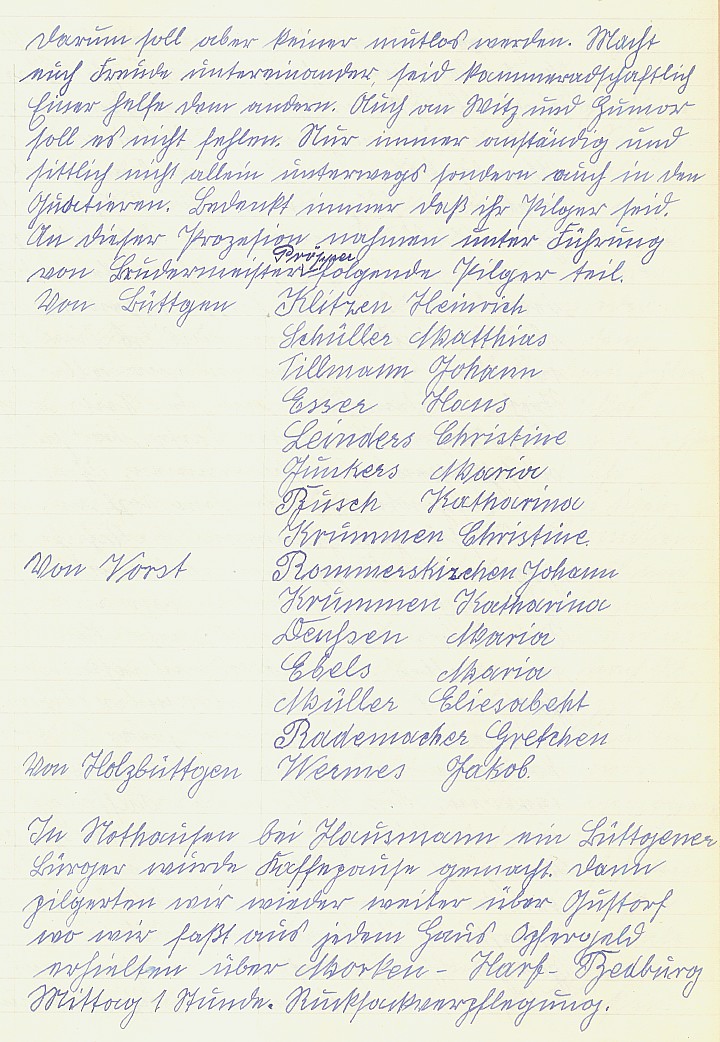 Darum soll aber keiner mutlos werden. Macht
euch Freude untereinander, seid kammeradschaftlich
Einer helfe dem andern. Auch an Witz und Humor
soll es nicht fehlen. Nur immer anständig und
sittlich nicht allein unterwegs sondern auch in den
Quatieren. Bedenkt immer daß ihr Pilger seid.
An dieser Prozesion nahmen unter Führung
von Brudermeister Prösper folgende Pilger teil.
Von Büttgen Klitzen Heinrich
Schüller Matthias
Tillmann Johann
Esser Hans
Leinders Christine
Junkers Maria
Busch Katharina
Krummen Christine.
Von Vorst Rommerskirchen Johann
Krummen Katharina
Deußen Maria
Ebels Maria
Müller Eliesabeht
Rademacher Gretchen
Von Holzbüttgen Wermes Jakob.
In Nothausen bei Hausmann ein Büttgener
Bürger wurde Kaffepause gemacht. Dann
pilgerten wir wieder weiter über Gustorf
wo wir faßt aus jedem Haus Opfergeld
erhielten über Morken - Harf - Bedburg
Mittag 1 Stunde. Rucksackverpflegung.